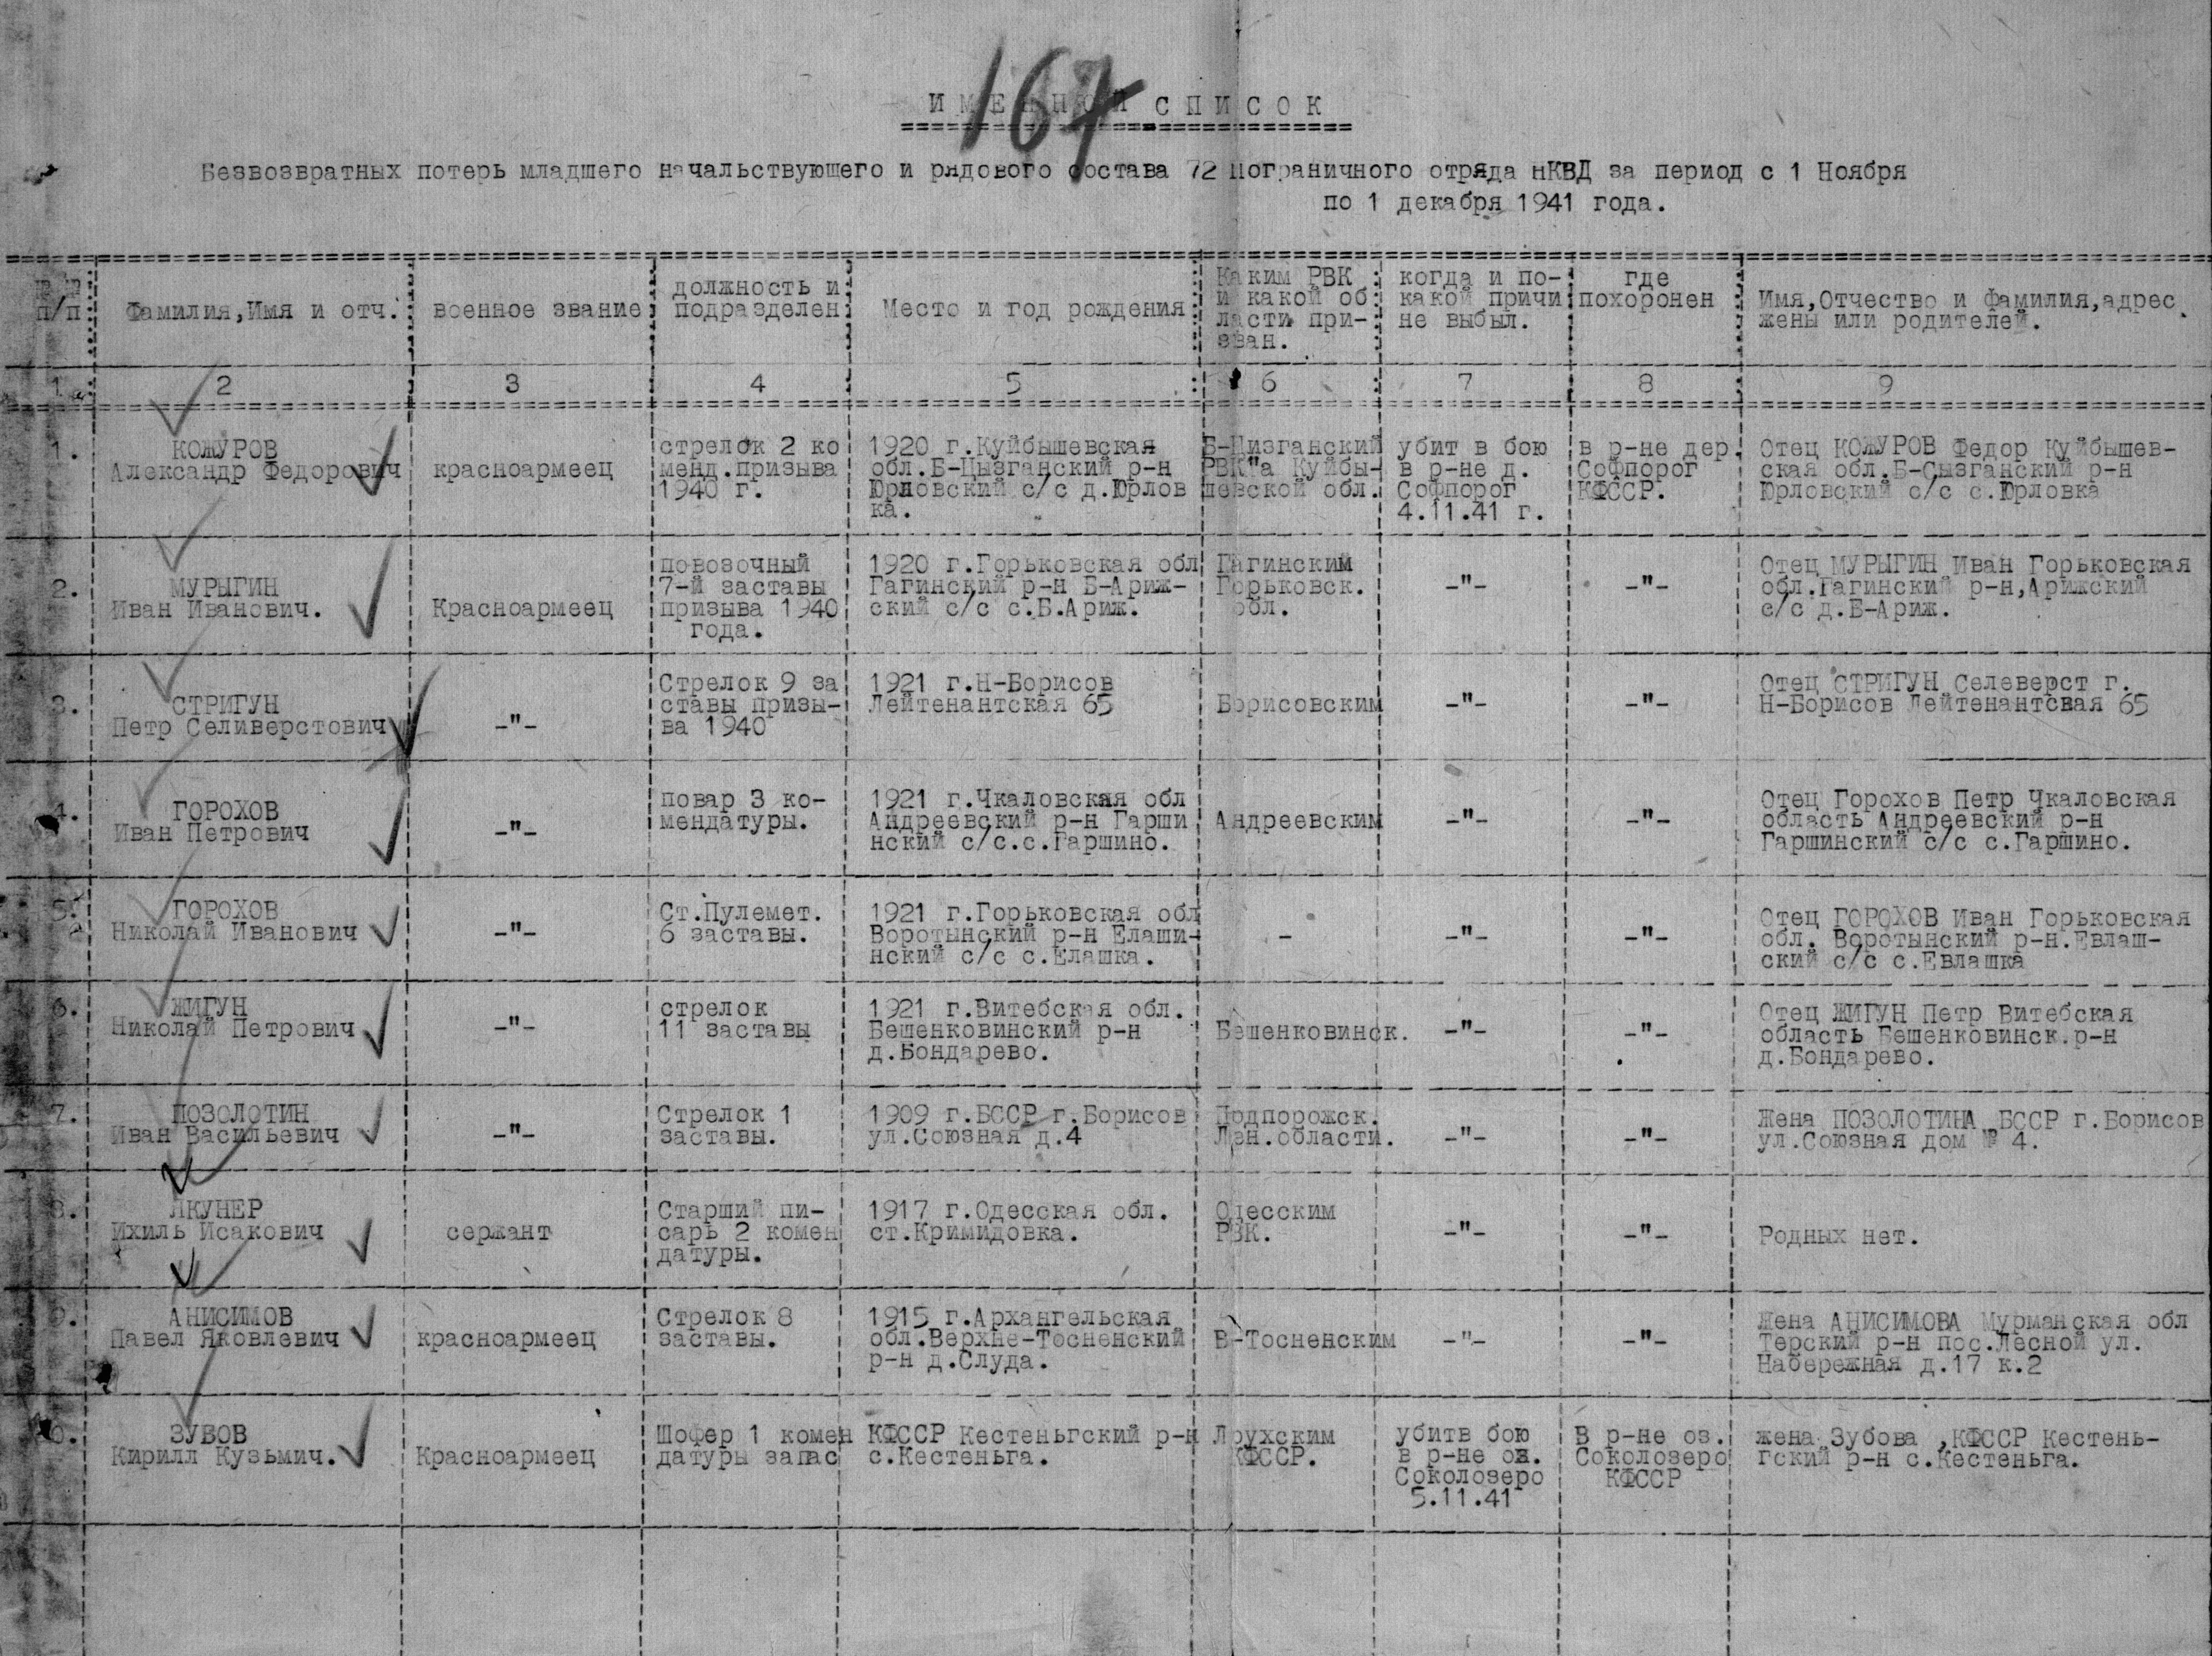 167
ИМЕННОЙ СПИСОК
Безвозвратных потерь младшего начальствующего и рядового состава 72 пограничного отряда НКВД за период с 1 Ноября
по 1 декабря 1941 года.
№№ п/п
Фамилия,Имя и отч.
военное звание
должность и
подразделен
Место и год рождения
Каким РВК
и какой об
ласти при-
зван.
когда и по-
какой причи
не выбыл.
где
похоронен
Имя,Отчество и Фамилия,адрес
жены или родителей.
1 2 3 4 5 6 7 8 9
1.
КОЖУРОВ
Александр Федорович
красноармеец
стрелок 2 ко
менд.призыва
1940 г.
1920 г.Куйбышевская
обл.Б-Цызганский р-н
Юрловский с/с д.Юрлов
ка.
Б-Цизганский
РВК"а Куйбы-
шевской обл.
убит в бою
в р-не д.
Софпорог
4.11.41 г.
в р-не дер.
Софпорог
КФССР.
Отец КОЖУРОВ Федор Куйбышев-
ская обл.Б-Сызганский р-н
Юрловский с/с с.Юрловка
2.
МУРЫГИН
Иван Иванович.
Красноармеец
повозочный
7-й заставы
призыва 1940
года.
1920 г.Горьковская обл
Гагинский р-н Б-Ариж-
ский с/с с.Б.Ариж.
Гагинским
Горьковск.
обл.
-"-
-"-
Отец МУРЫГИН Иван Горьковская
обл.Гагинский р-н,Арижский
с/с д.Б-Ариж.
3.
СТРИГУН
Петр Селиверстович
-"-
Стрелок 9 за
ставы призы-
ва 1940
1921 г.Н-Борисов
Лейтенантская 65
Борисовским
-"-
-"-
Отец СТРИГУН Селеверст г.
Н-Борисов Лейтенантсвая 65
4.
ГОРОХОВ
Иван Петрович
-"-
повар 3 ко-
мендатуры.
1921 г.Чкаловская обл
Андреевский р-н Гарши
нский с/с.с.Гаршино.
Андреевским
-"-
-"-
Отец Горохов Петр Чкаловская
область Андреевский р-н
Гаршинский с/с с.Гаршино.
5.
ГОРОХОВ
Николай Иванович
-"-
Ст.Пулемет.
6 заставы.
1921 г.Горьковская обл
Воротынский р-н Елаши-
нский с/с с.Елашка.
-
-"-
-"-
Отец ГОРОХОВ Иван Горьковская
обл. Воротынский р-н.Евлаш-
ский с/с с.Евлашка
6.
ЖИГУН
Николай Петрович
-"-
стрелок
11 заставы
1921 г.Витебская обл.
Бешенковинский р-н
д.Бондарево.
Бешенковинск.
-"-
-"-
Отец ЖИГУН Петр Витебская
область Бешенковинск.р-н
д.Бондарево.
7.
ПОЗОЛОТИН
Иван Васильевич
-"-
Стрелок 1
заставы.
1909 г.БССР г.Борисов
ул.Союзная д.4
Подпорожск.
Лен.области.
-"-
-"-
Жена ПОЗОЛОТИНА БССР г.Борисов
ул.Союзная дом № 4.
8.
ЛКУНЕР
Ихиль Исакович
сержант
Старший пи-
сарь 2 комен
датуры.
1917 г.Одесская обл.
ст.Кримидовка.
Одесским
РВК.
-"-
-"-
Родных нет.
9.
АНИСИМОВ
Павел Яковлевич
красноармеец
Стрелок 8
заставы.
1915 г.Архангельская
обл.Верхне-Тосненский
р-н д.Слуда.
В-Тосненским
-"-
-"-
Жена АНИСИМОВА Мурманская обл
Терский р-н пос.Лесной ул.
Набережная д.17 к.2
10.
ЗУБОВ
Кирилл Кузьмич.
Красноармеец
Шофер 1 комен
датуры запас
КФССР Кестеньгский р-н
с.Кестеньга.
Лоухским
КФССР.
убитв бою
в р-не оз.
Соколозеро
5.11.41
В р-не оз.
Соколозеро
КФССР
жена Зубова ,КФССР Кестень-
гский р-н с.Кестеньга.